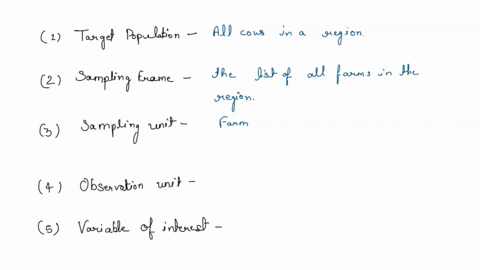 (1) Target Population - All cows in a region
(2) Sampling frame - the list of all farms in the
region.
(3) Sampling unit - Farm
(4) Observation unit -
(5) Variable of interest -